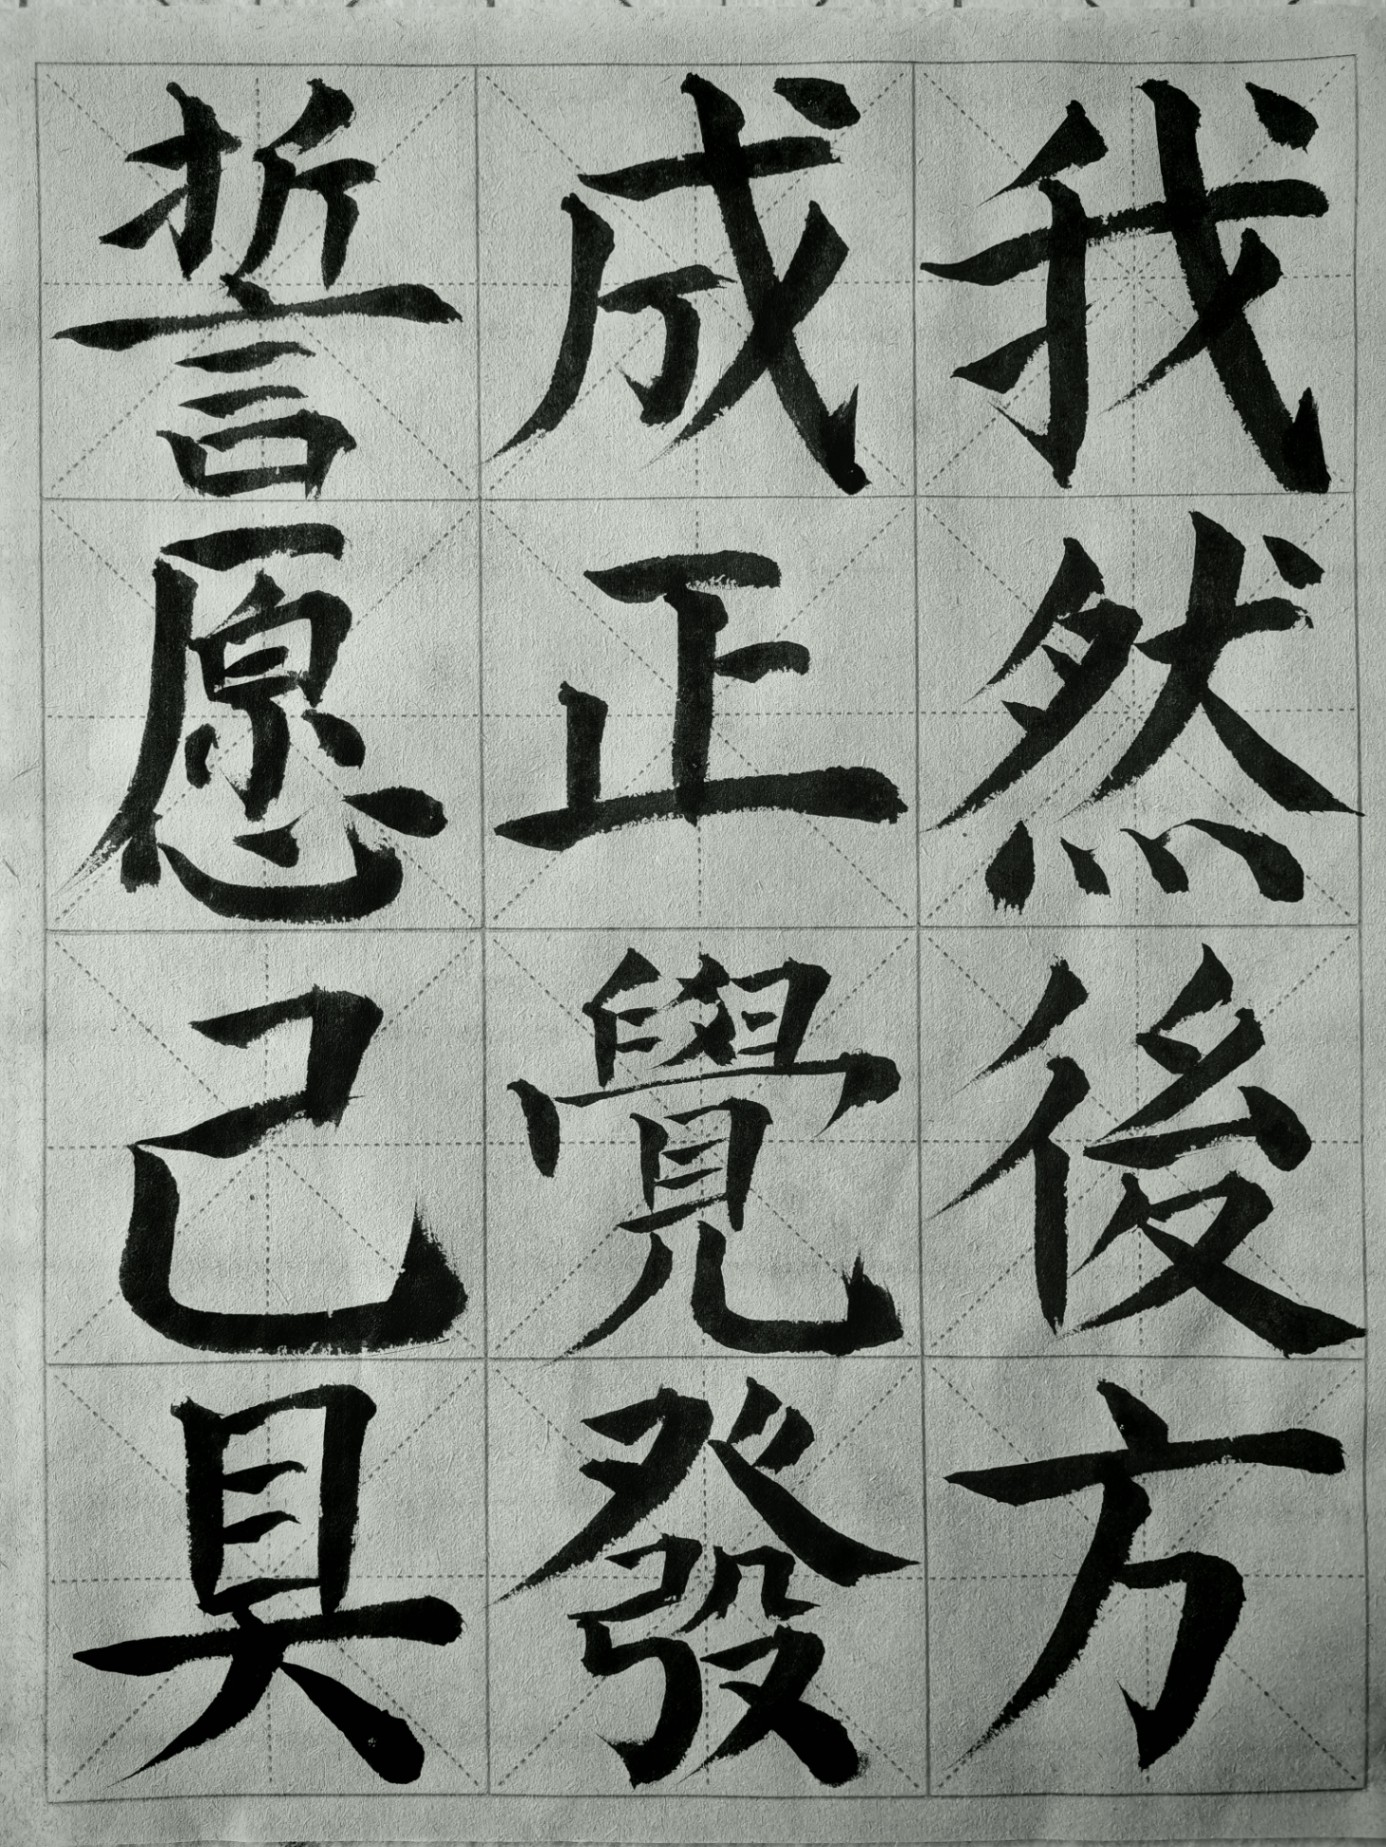 我然後方
成正覺發
誓愿己具